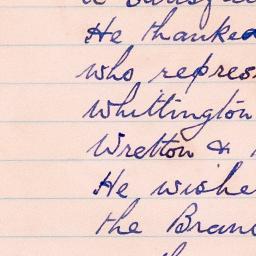 He thanked
who repres
Whittington
Wretton &
He wishe
the Bran